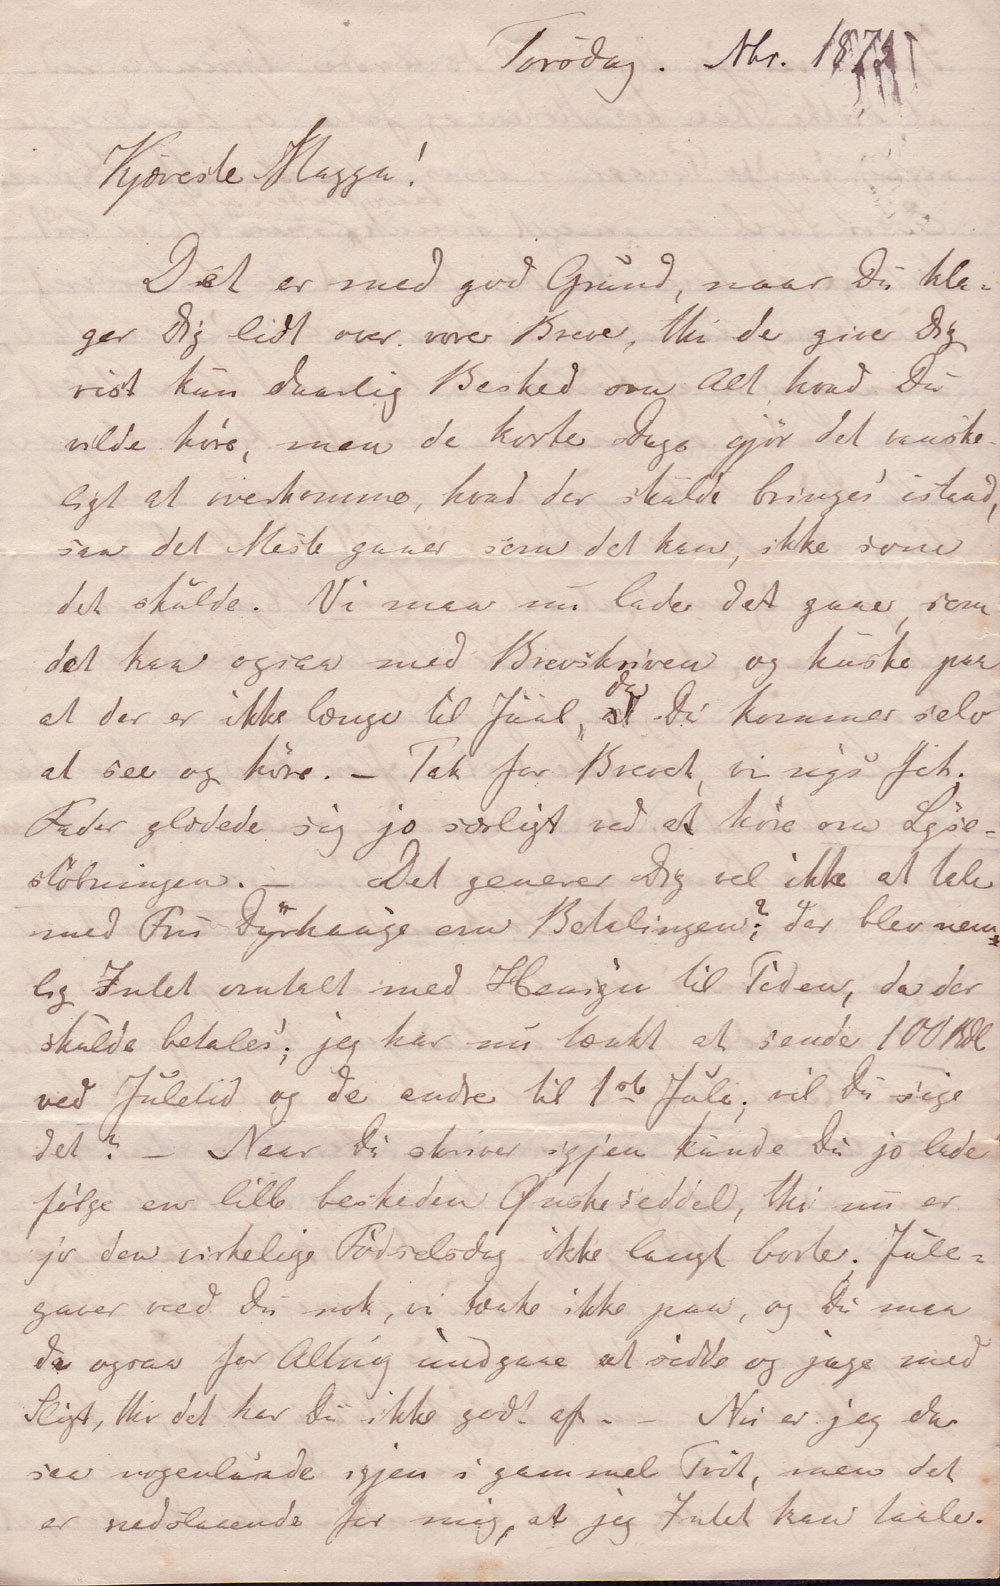 Torsdag. Nbr. 187
Kjæreste Magga!
Det er med god Grund, naar Du kla-
ger Dig lidt over vore Breve, thi de giver Dig
vist kun daarlig Besked om Alt hvad Du
vilde høre, men de korte Dage gjør det vanske-
ligt at overkomme, hvad der skulde bringes istand,
saa det Meste gaaer som det kan, ikke som
det skulde. Vi maa nu lade det gaae, som
det kan ogsaa med Brevskriven og huske paa
at der er ikke længe til Juul, da Du kommer selv
at see og høre. — Tak for Brevet, vi
Fader glædede sig jo særligt ved at høre om Lyse-
støbningen. — Det generer Dig vel ikke at tale
med Fru Dyrhauge om Betalingen? der blev nem-
lig Intet omtalt med Hensyn til Tiden, da der
skulde betales; jeg har nu tænkt at sende 100 Rdl
ved Juletid og de andre til 1ste Juli; vil Du sige
det? — Naar Du skriver igjen kunde Du jo lade
følge en lille beskeden Ønskeseddel, thi nu er
jo den virkelige Fødselsdag ikke langt borte. Jule-
gaver veed Du nok, vi tænke ikke paa, og Du maa
da ogsaa for Alting undgaae at sidde og jage med
Sligt, thi det har Du ikke godt af. — Nu er jeg da
saa nogenlunde igjen i gammel Trit, men det
er nedslaaende for mig, at jeg Intet kan taale.